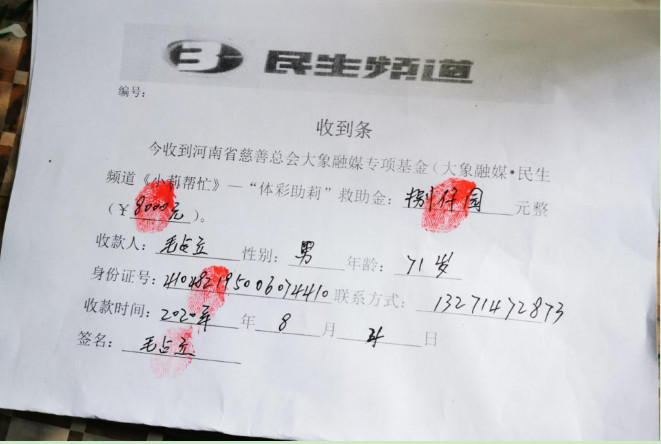 3 民生频道
编号：
收到条
今收到河南省慈善总会大象融媒专项基金（大象融媒•民生
频道《小莉帮忙》—“体彩助莉”救助金：捌仟圆 元整
（¥8000元）。
收款人：毛占立 性别：男 年龄：71岁
身份证号：410482195006074410 联系方式：13271472873
收款时间：2020年 年 8 月 21 日
签名：毛占立